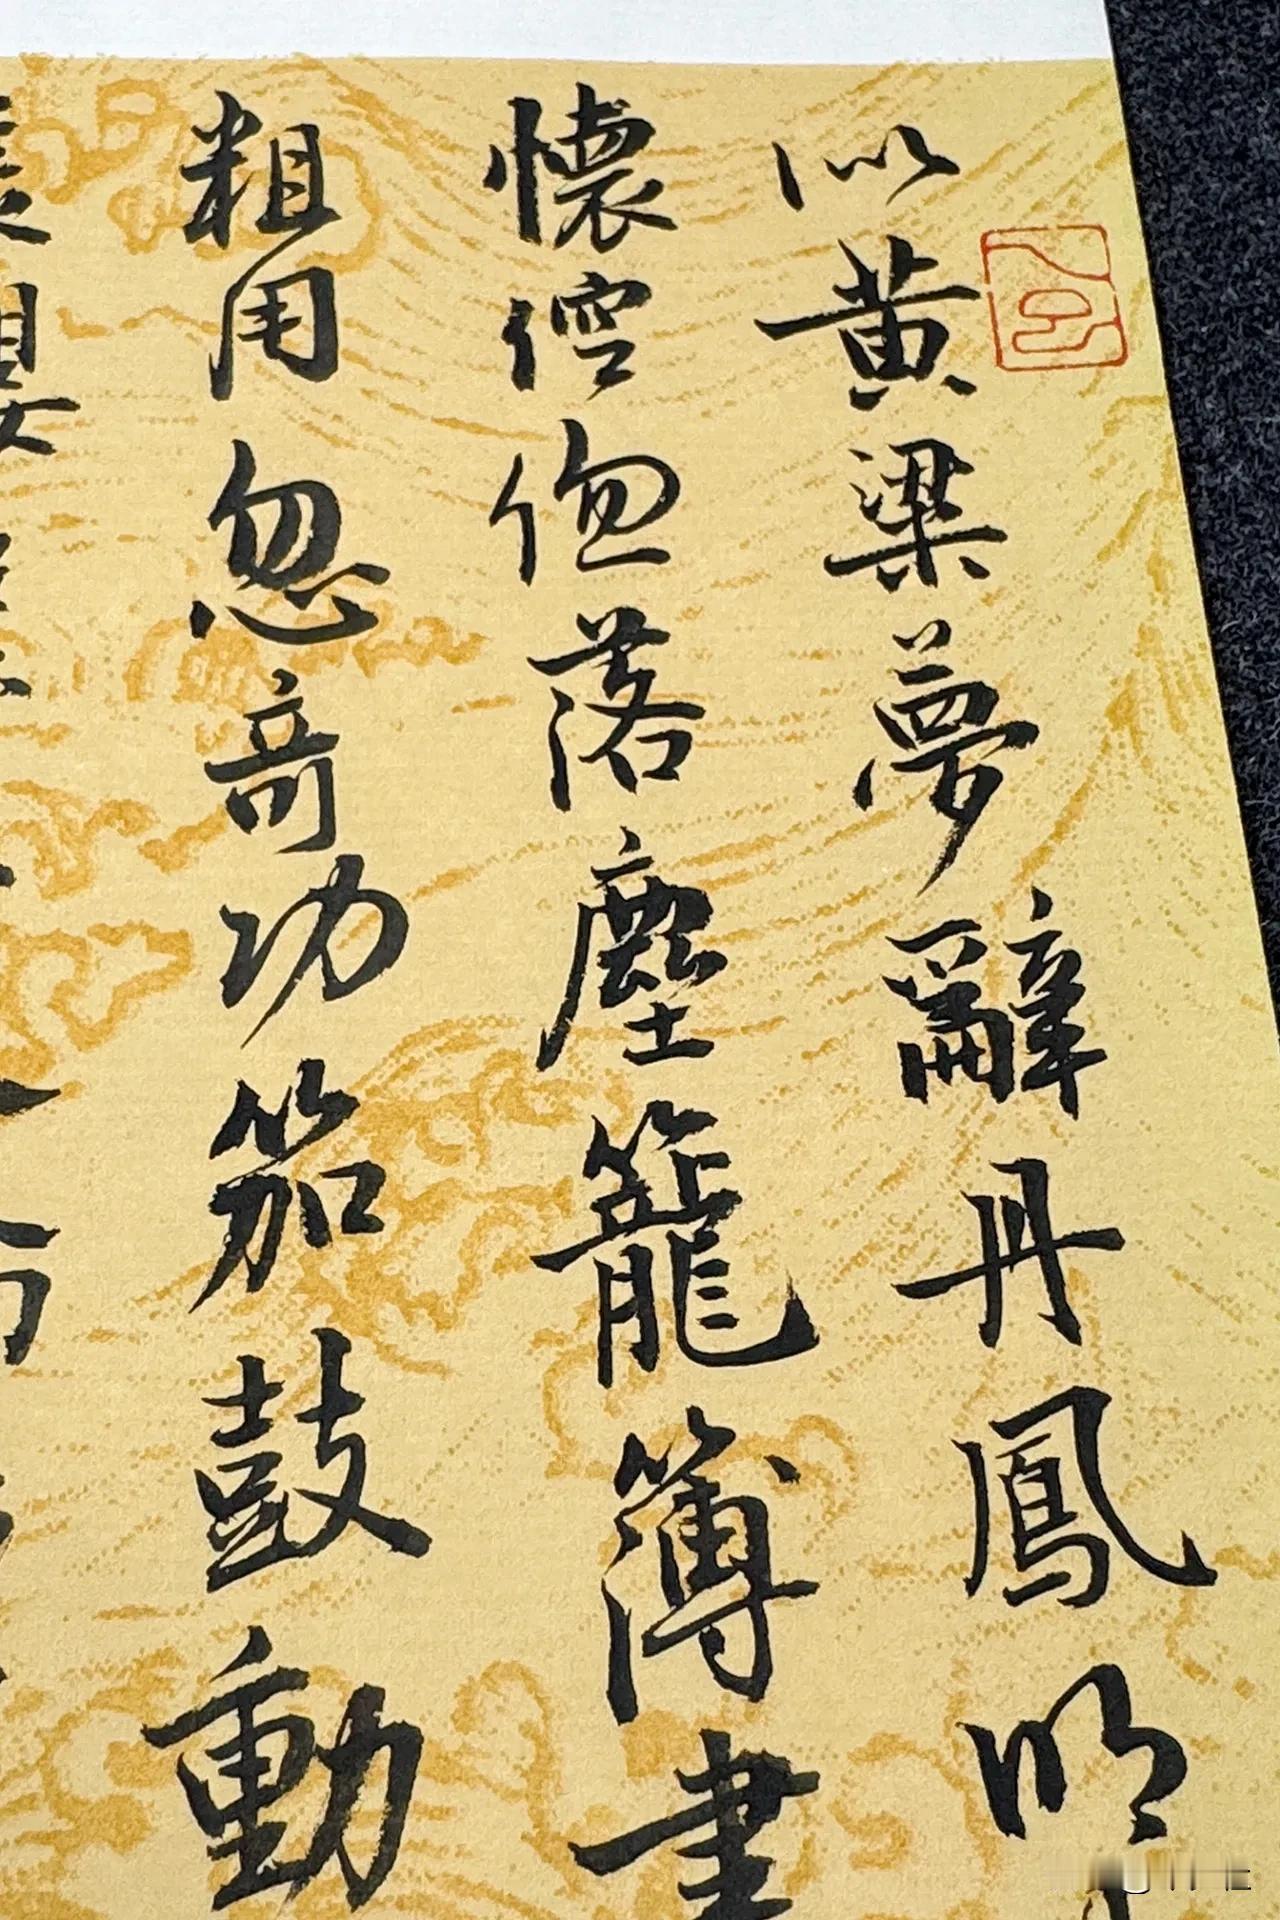 以黄梁夢辭丹鳳明
懷倥傯落塵籠簿書
粗用忽奇功笳鼓動